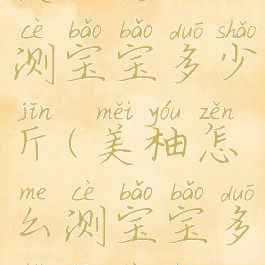 cè bǎo bǎo duō shǎo
测宝宝多少
jīn měi yóu zěn
斤(美柚怎
me cè bǎo bǎo duō
么测宝宝多